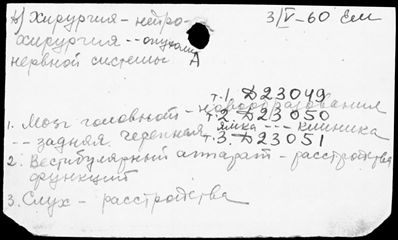 в) Хирургия - нейро-
3/V-60 Ели
хирургия -- опухоли
нервной системы А
т.1. Д23049
1. Мозг головной - новообразования
т.2. Д23050
-- задняя черепная ямка --- клиника
т.3. Д23051
2. Вестибулярный аппарат - расстройства
функций
3. Слух - расстройства